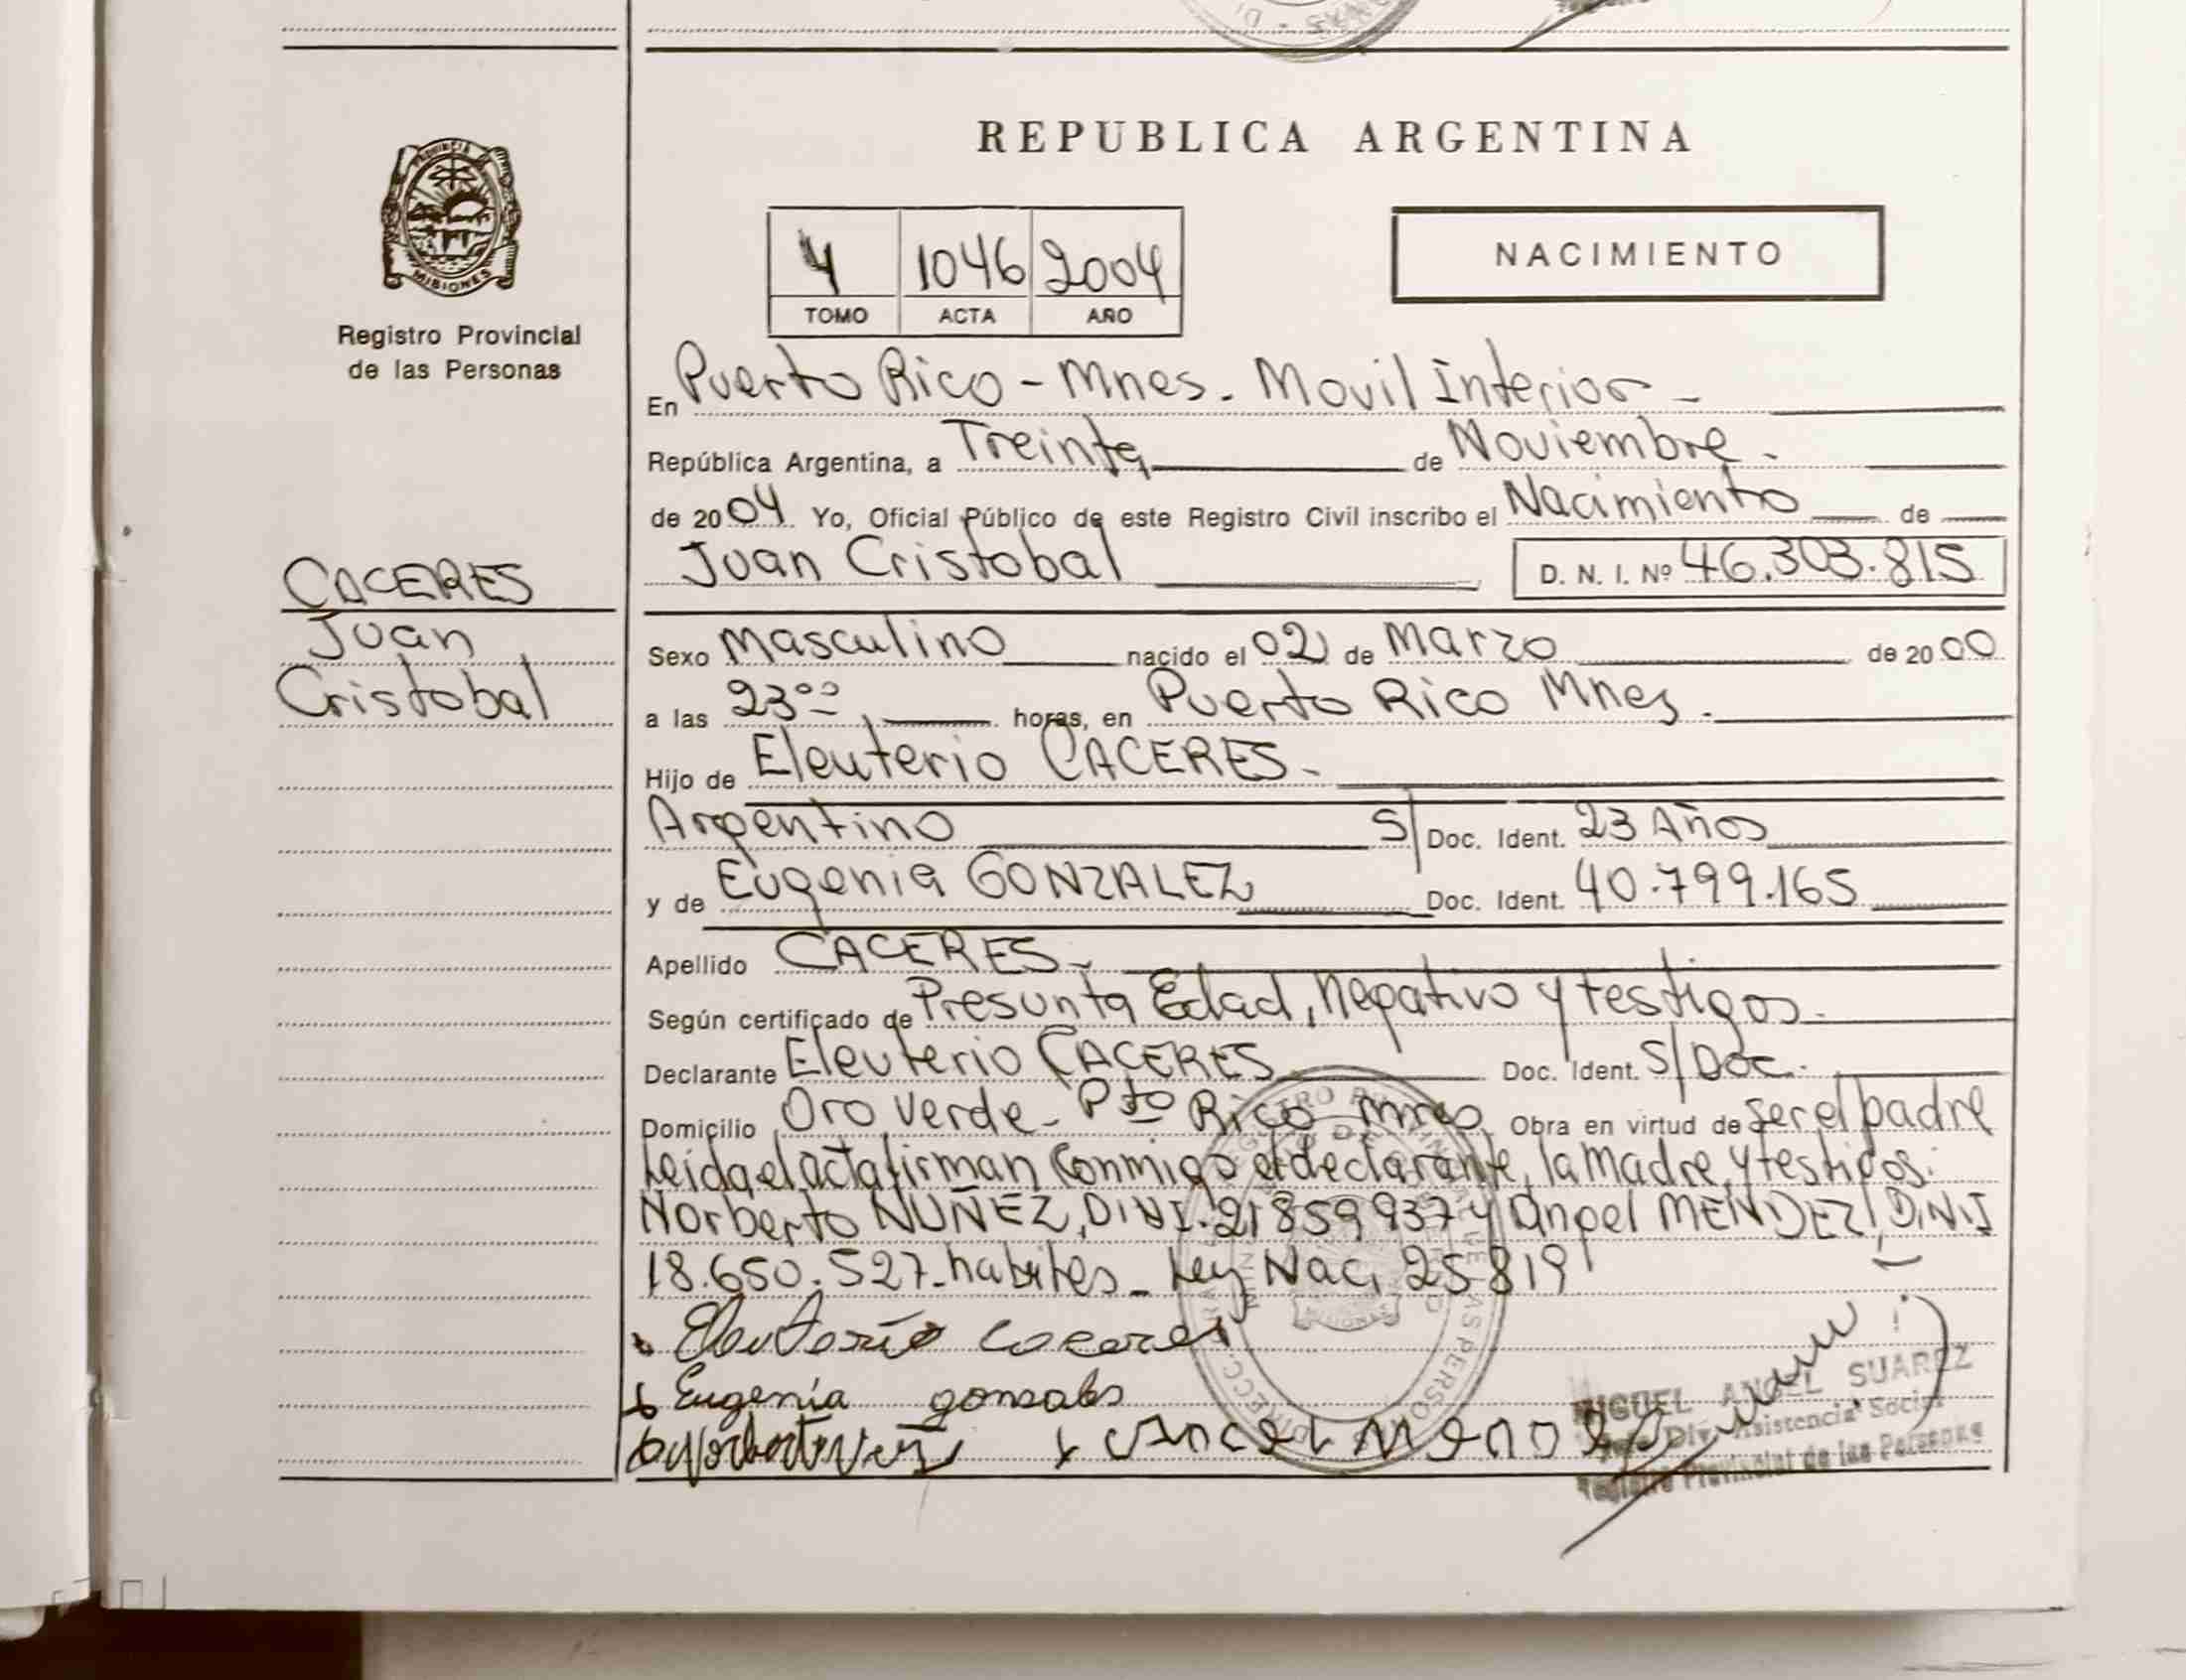 REPUBLICA ARGENTINA
PROVINCIA
MISIONES
Registro Provincial
de las Personas
4 1046 2004
TOMO ACTA AÑO
NACIMIENTO
En Puerto Rico - Mnes. Movil Interior -
República Argentina, a Treinta de Noviembre.
de 2004 Yo, Oficial Público de este Registro Civil inscribo el Nacimiento de
Juan Cristobal D. N. I. Nº 46.303.815
CACERES
Juan
Cristobal
Sexo Masculino nacido el 02 de Marzo de 2000
a las 23⁰⁰, horas, en Puerto Rico Mnes.
Hijo de Eleuterio CACERES-
Argentino S/ Doc. Ident. 23 Años
y de Eugenia GONZALEZ Doc. Ident. 40.799.165
Apellido CACERES-
Según certificado de Presunta Edad, Negativo y testigos.
Declarante Eleuterio CACERES Doc. Ident. S/Doc.
Domicilio Oro Verde - Pto Rico Mnes. Obra en virtud de ser el padre
Leida el acta firman conmigo el declarante, la madre, y testigos:
Norberto NUÑEZ, D.N.I. 21859937 y Angel MENDEZ, D.N.I
18.650.527 habiles - Ley Nac. 25819
Eleuterio Caceres
Eugenia gonsales
MIGUEL ANGEL SUAREZ
Div. Asistencia Social
Registro Provincial de las Personas